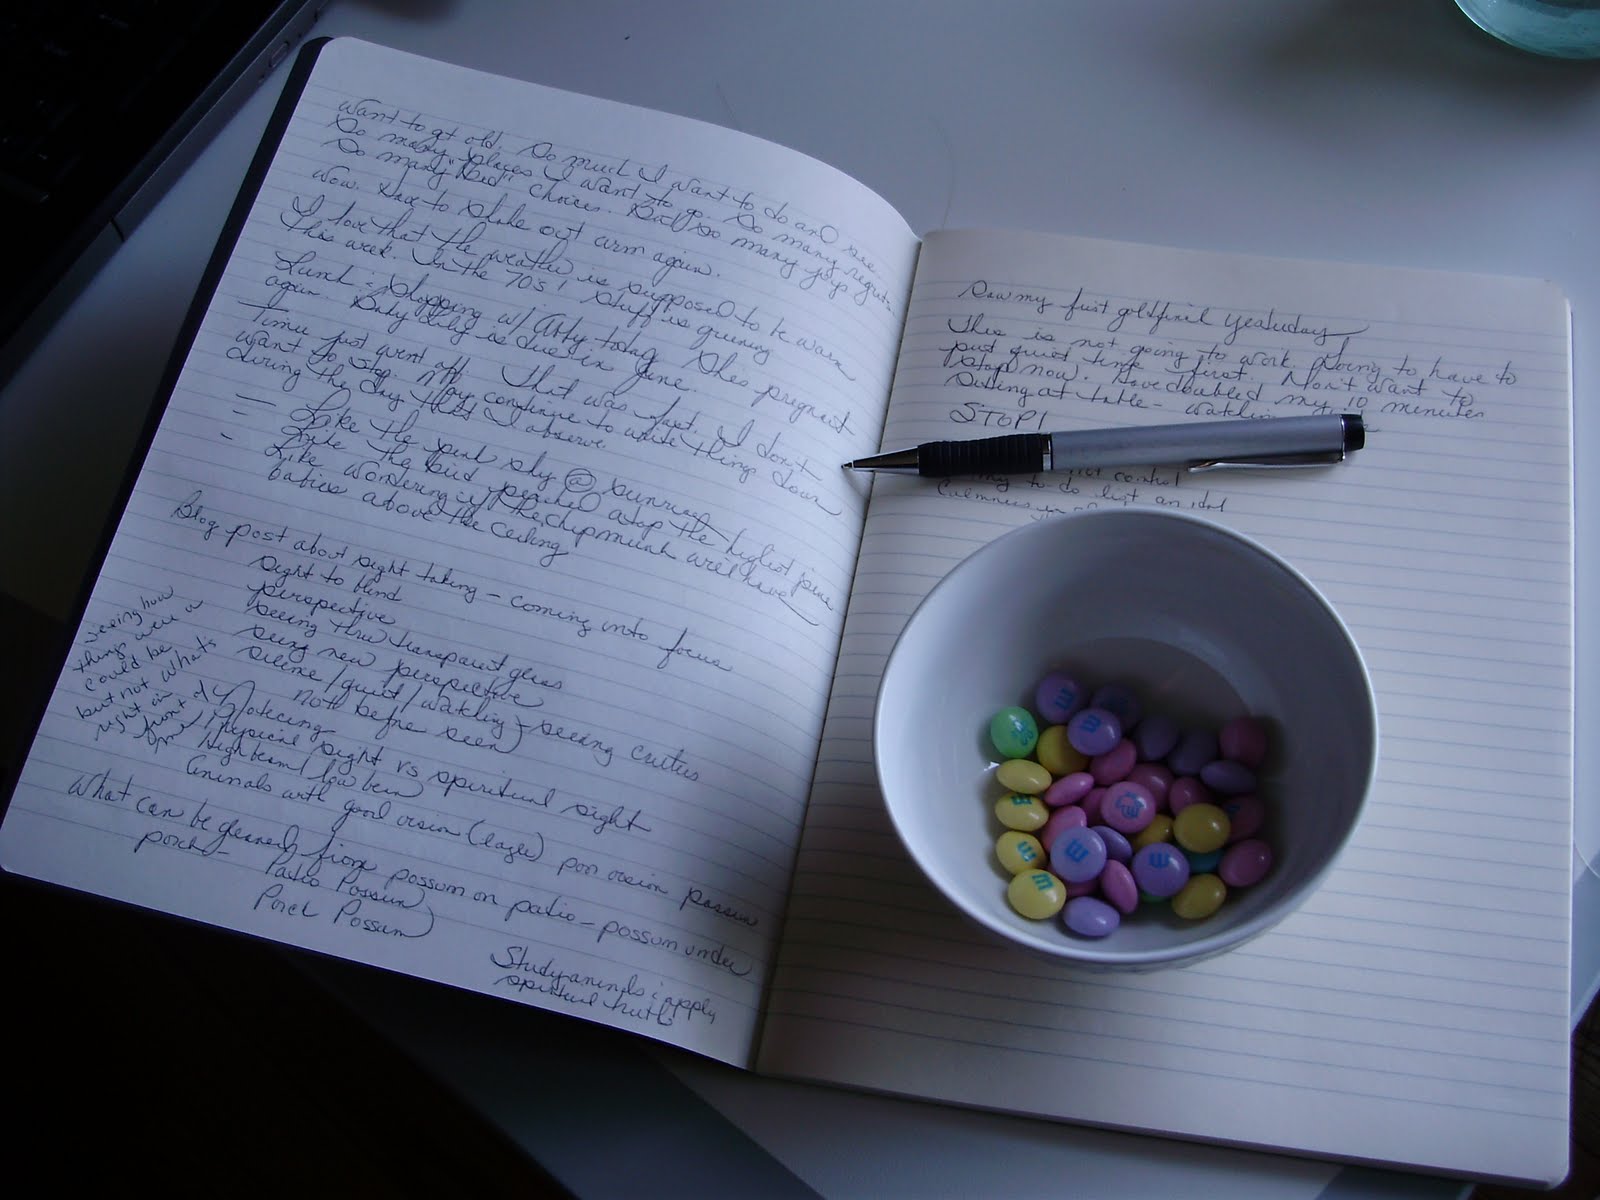 want to get old. So much I want to do and see.
So many places I want to go. So many regrets.
So many "bad" choices. But so many joys
Wow. Have to shake out arm again.
I love that the weather is supposed to be warm
this week. In the 70's! Stuff is greening
again.
Lunch & shopping w/ today. She's pregnant
Baby is due in June.
Timer just went off. That was fast. I don't
want to stop. May continue to write things down
during the day that I observe.
Like the pink sky @ sunrise
Like the bird perched atop the highest pine
Like wondering if the chipmunk will have
babies above the ceiling
Blog post about sight taking - coming into focus
sight to blind
perspective
seeing thru transparent glass
seeing new perspective
silence/quiet/watching - seeing critters
not before seen
Noticing
physical sight vs spiritual sight
high beam/low beam
animals with good vision (eagle) poor vision possum
seeing how
things were or
could be
but not what's
right in
front of
What can be gleaned from possum on patio - possum under
porch -
Patio Possum
Porch Possum
Study animals & apply
spiritual truths
Saw my first goldfinch yesterday
This is not going to work. Going to have to
put quiet time first. Don't want to
stop now. Have doubled my 10 minutes
Sitting at table - watching
STOP!
not control
to do list an idol
Calmness in
m
m
m
m
m
m